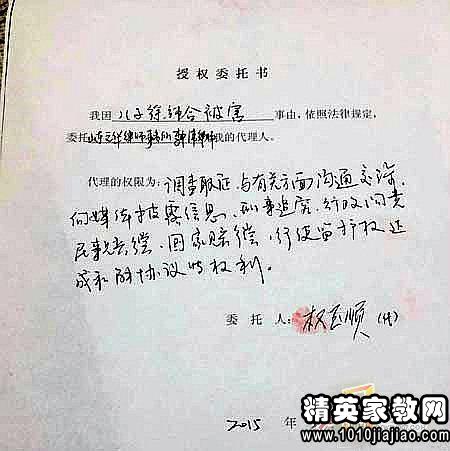 授权委托书
我因 儿子徐纯合被害 事由,依照法律规定,
委托山东 律师事务所 律师 我的代理人。
代理的权限为:调查取证、与有关方面沟通交涉、
向媒体披露信息、刑事追究、行政问责、
民事赔偿、国家赔偿、行使监护权、达
成和解协议等权利。
委托人:权玉顺(代)
2015 年
精英家教网
www.1010jiajiao.com